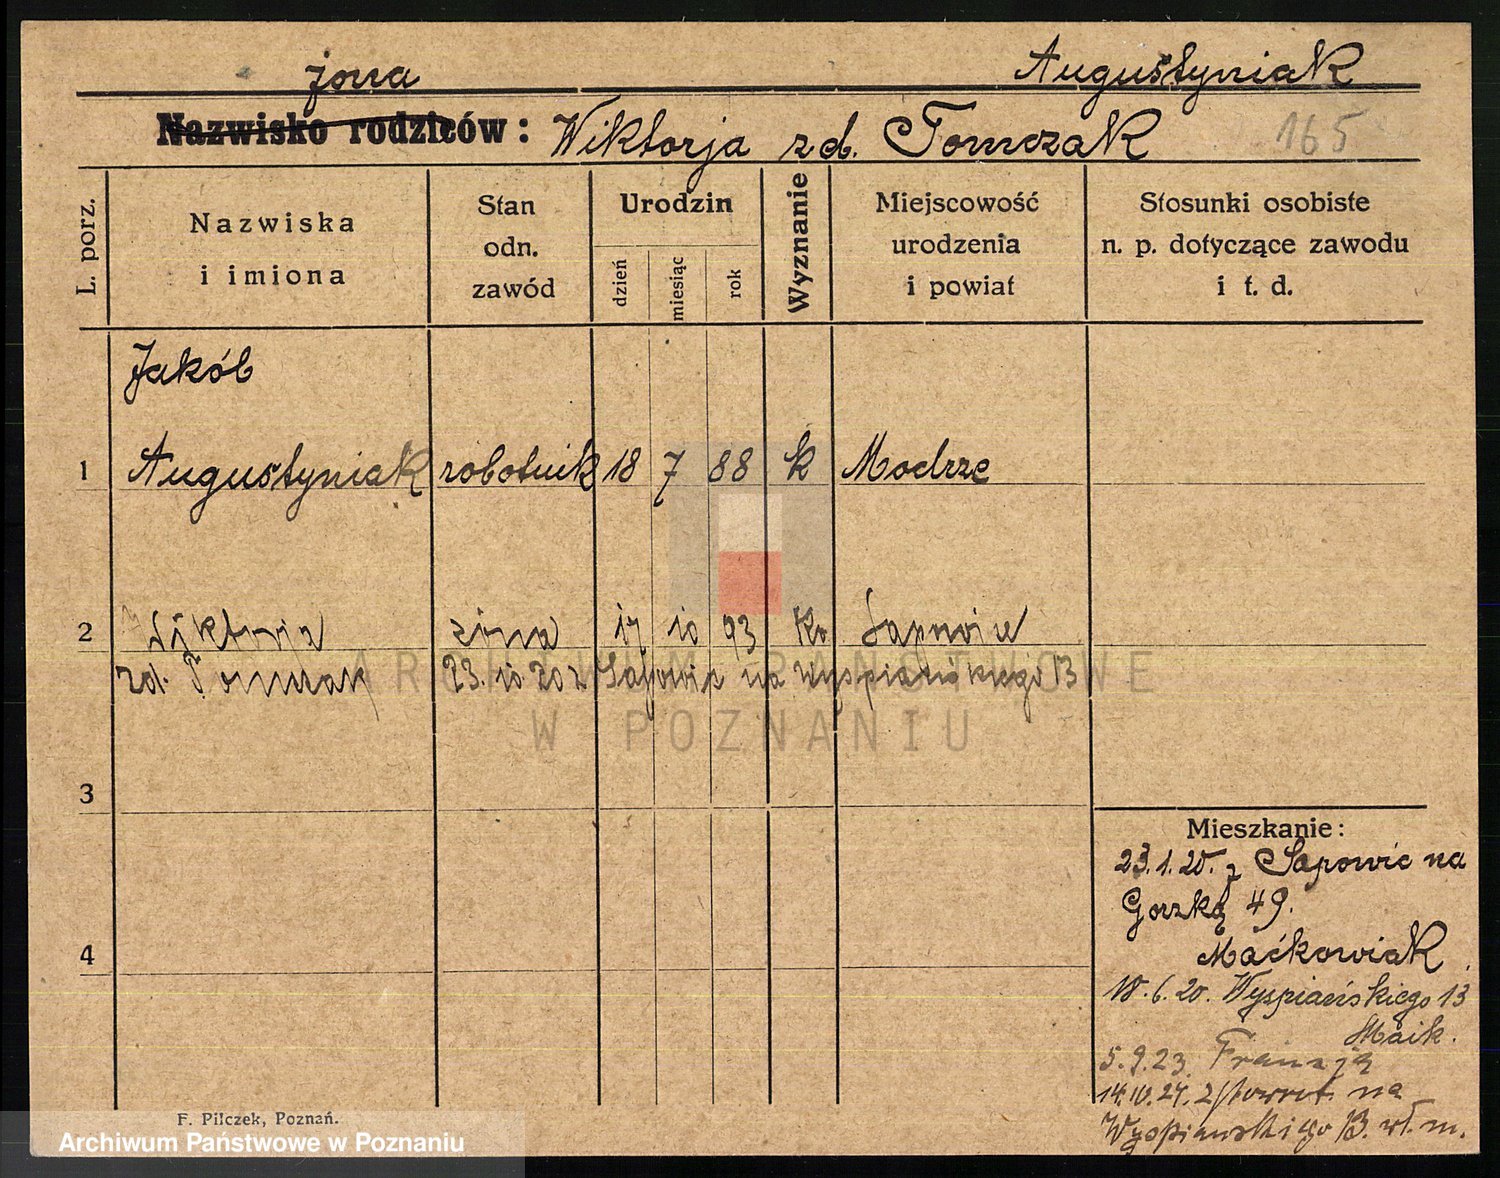 żona Augustyniak
Nazwisko rodziców: Wiktorja zd. Tomczak 165
L. porz.
Nazwiska
i imiona
Stan
odn.
zawód
Urodzin
dzień
miesiąc
rok
Wyznanie
Miejscowość
urodzenia
i powiat
Stosunki osobiste
n. p. dotyczące zawodu
i t. d.
Jakób
1 Augustyniak robotnik 18 7 88 k Modrze
2 Wyktorja żona 17 10 93 Ka Sapowice
zd. Tomczak 23. 10 20 z Sapowic na Wyspiańskiego 13
ARCHIWUM PAŃSTWOWE
W POZNANIU
3
4
Mieszkanie:
23.1.20. z Sapowic na
Gorzką 49.
Maćkowiak
18.6.20. Wyspiańskiego 13
Maik.
5.9.23. Francja
14.10.27. z powrot. na
Wyspiańskiego 13. wł. m.
F. Pilczek, Poznań.
Archiwum Państwowe w Poznaniu